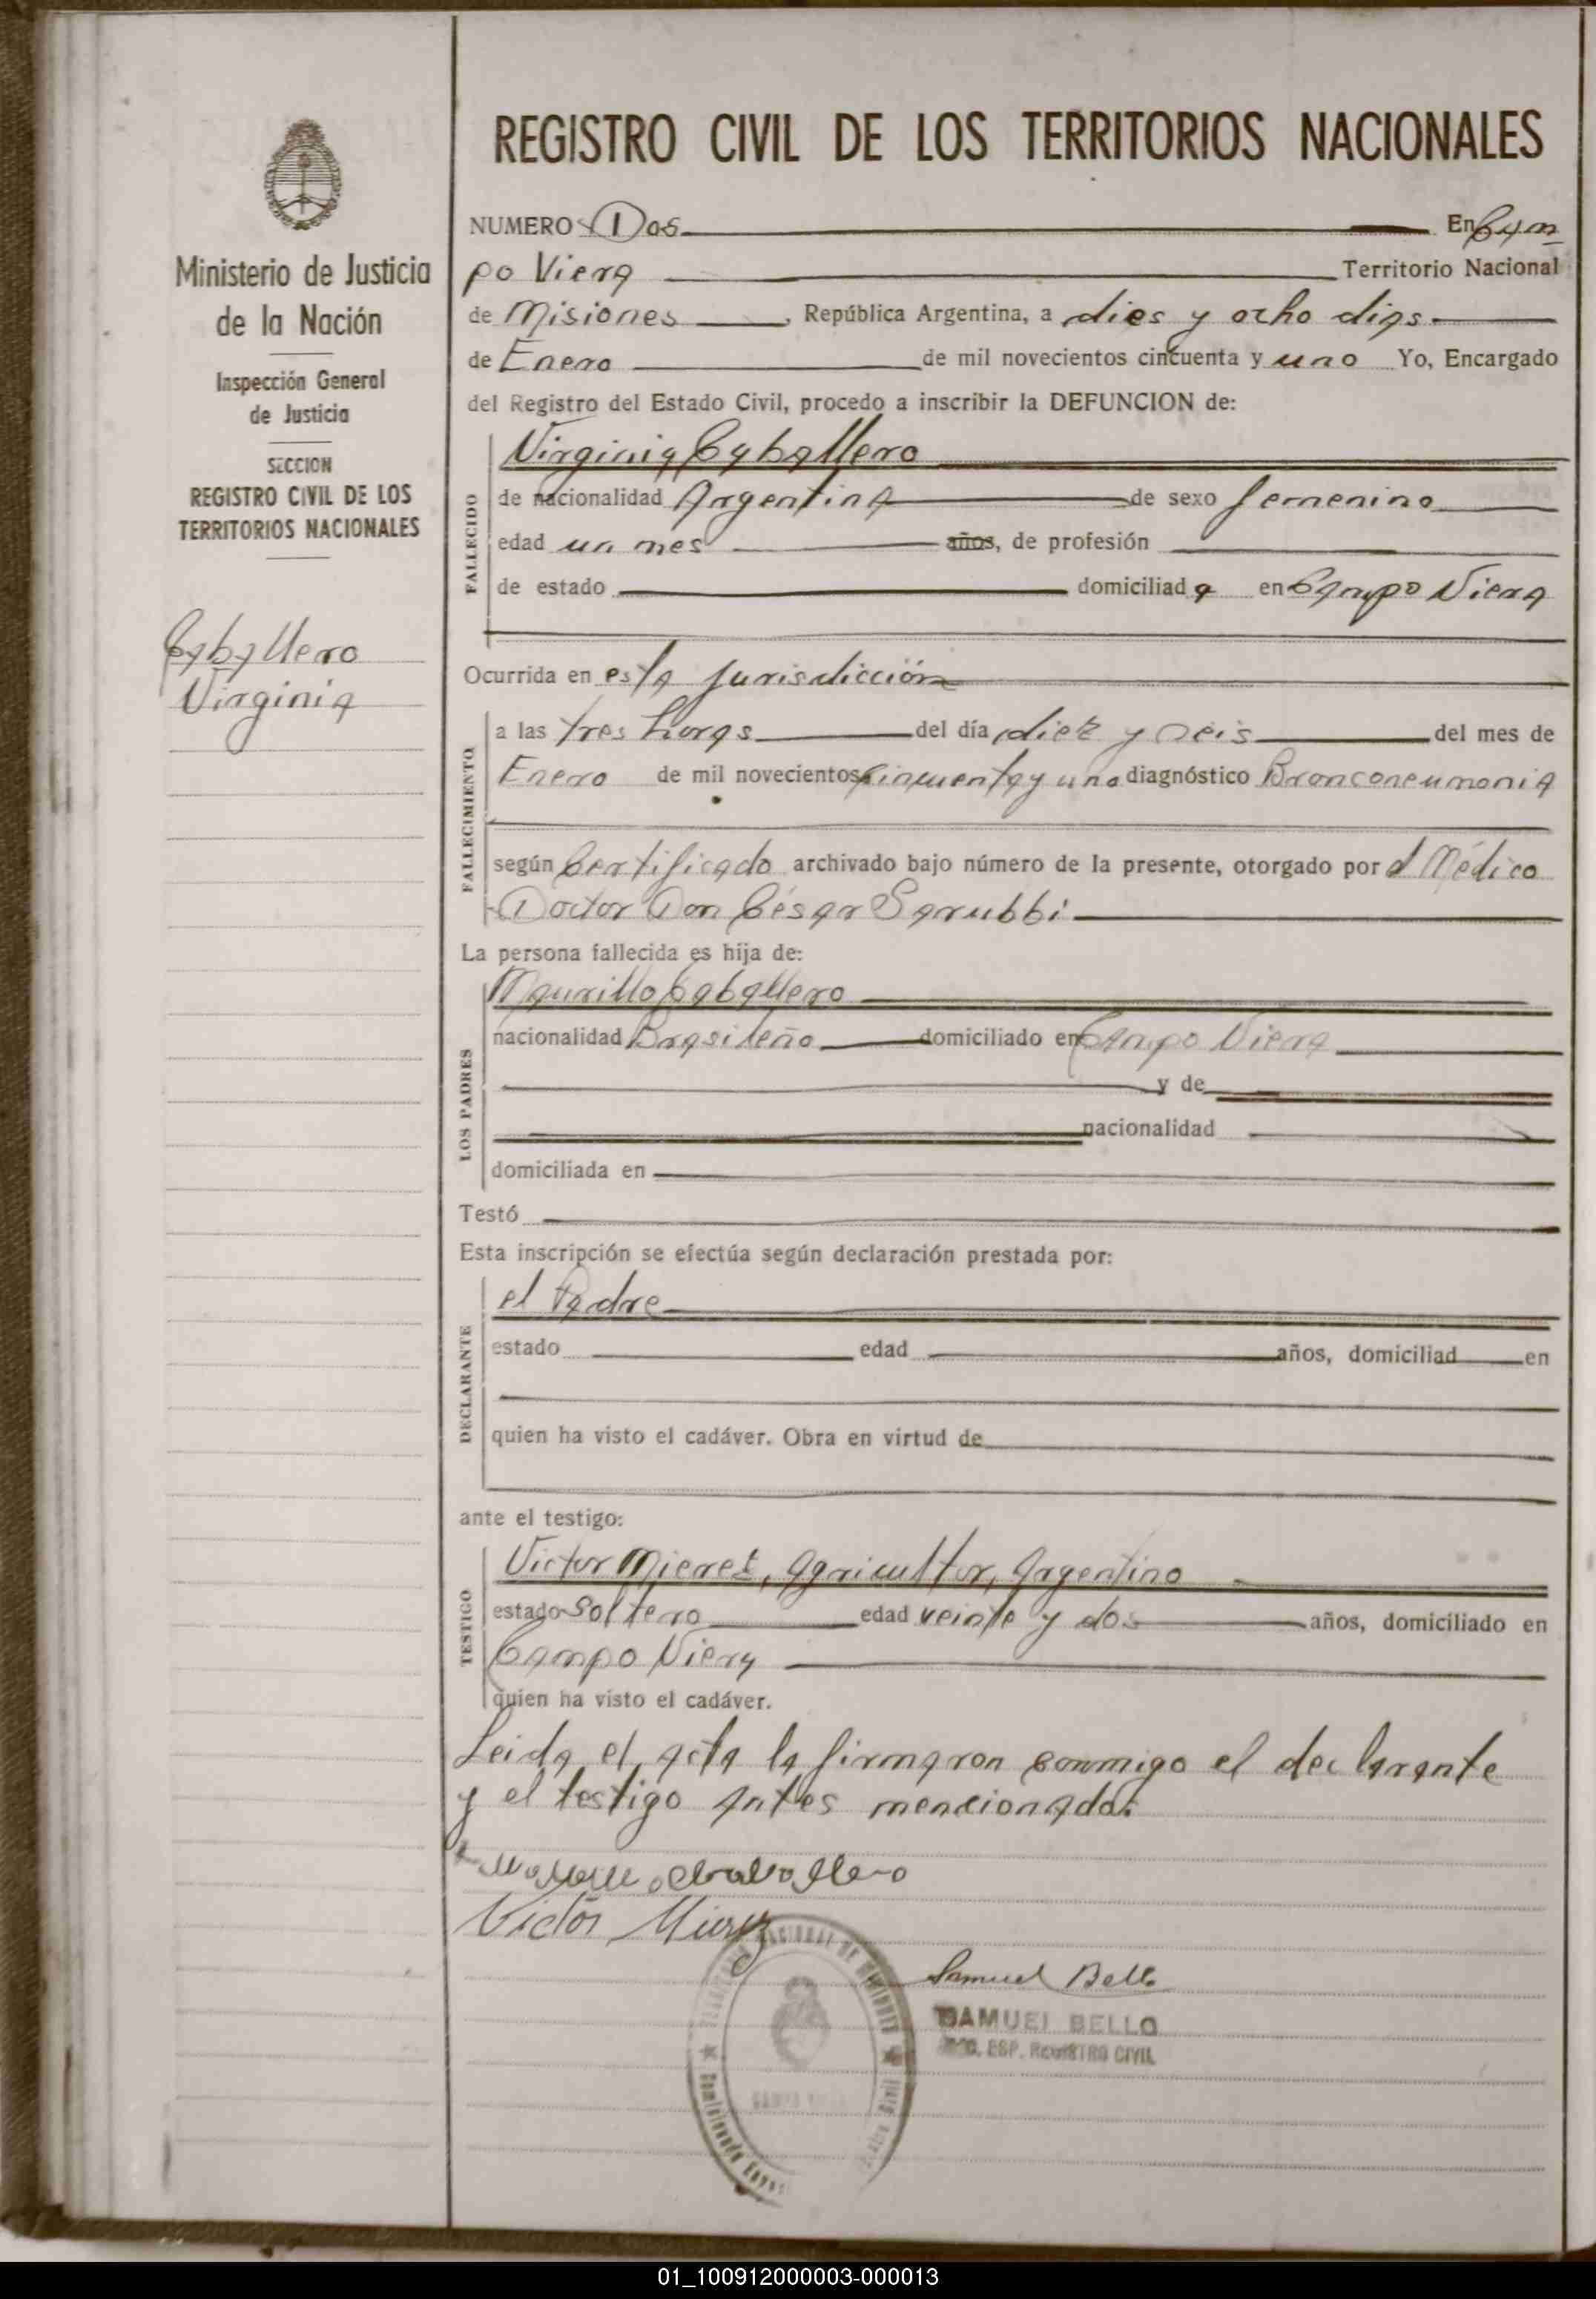 REGISTRO CIVIL DE LOS TERRITORIOS NACIONALES
Ministerio de Justicia
de la Nación
Inspección General
de Justicia
SECCION
REGISTRO CIVIL DE LOS
TERRITORIOS NACIONALES
Caballero
Virginia
NUMERO Dos En Cam
po Viera Territorio Nacional
de Misiones, República Argentina, a dies y ocho dias
de Enero de mil novecientos cincuenta y uno Yo, Encargado
del Registro del Estado Civil, procedo a inscribir la DEFUNCION de:
FALLECIDO
Virginia Caballero
de nacionalidad Argentina de sexo femenino
edad un mes años, de profesión
de estado domiciliada en Campo Viera
Ocurrida en esta jurisdicción
FALLECIMIENTO
a las tres horas del día diez y seis del mes de
Enero de mil novecientos cincuenta y uno diagnóstico Bronconeumonia
según Certificado archivado bajo número de la presente, otorgado por el Médico
Doctor Don César Sarubbi
La persona fallecida es hija de:
LOS PADRES
Maurillo Caballero
nacionalidad Brasileño domiciliado en Campo Viera
y de
nacionalidad
domiciliada en
Testó
Esta inscripción se efectúa según declaración prestada por:
DECLARANTE
el Padre
estado edad años, domiciliad en
quien ha visto el cadáver. Obra en virtud de
ante el testigo:
TESTIGO
Victor Mierez, Agricultor, Argentino
estado Soltero edad veinte y dos años, domiciliado en
Campo Viera
quien ha visto el cadáver.
Leida el acta la firmaron conmigo el declarante
y el testigo antes mencionados
Caballero
Victor Mierez
Samuel Bello
SAMUEL BELLO
ESP. REGISTRO CIVIL
01_100912000003-000013